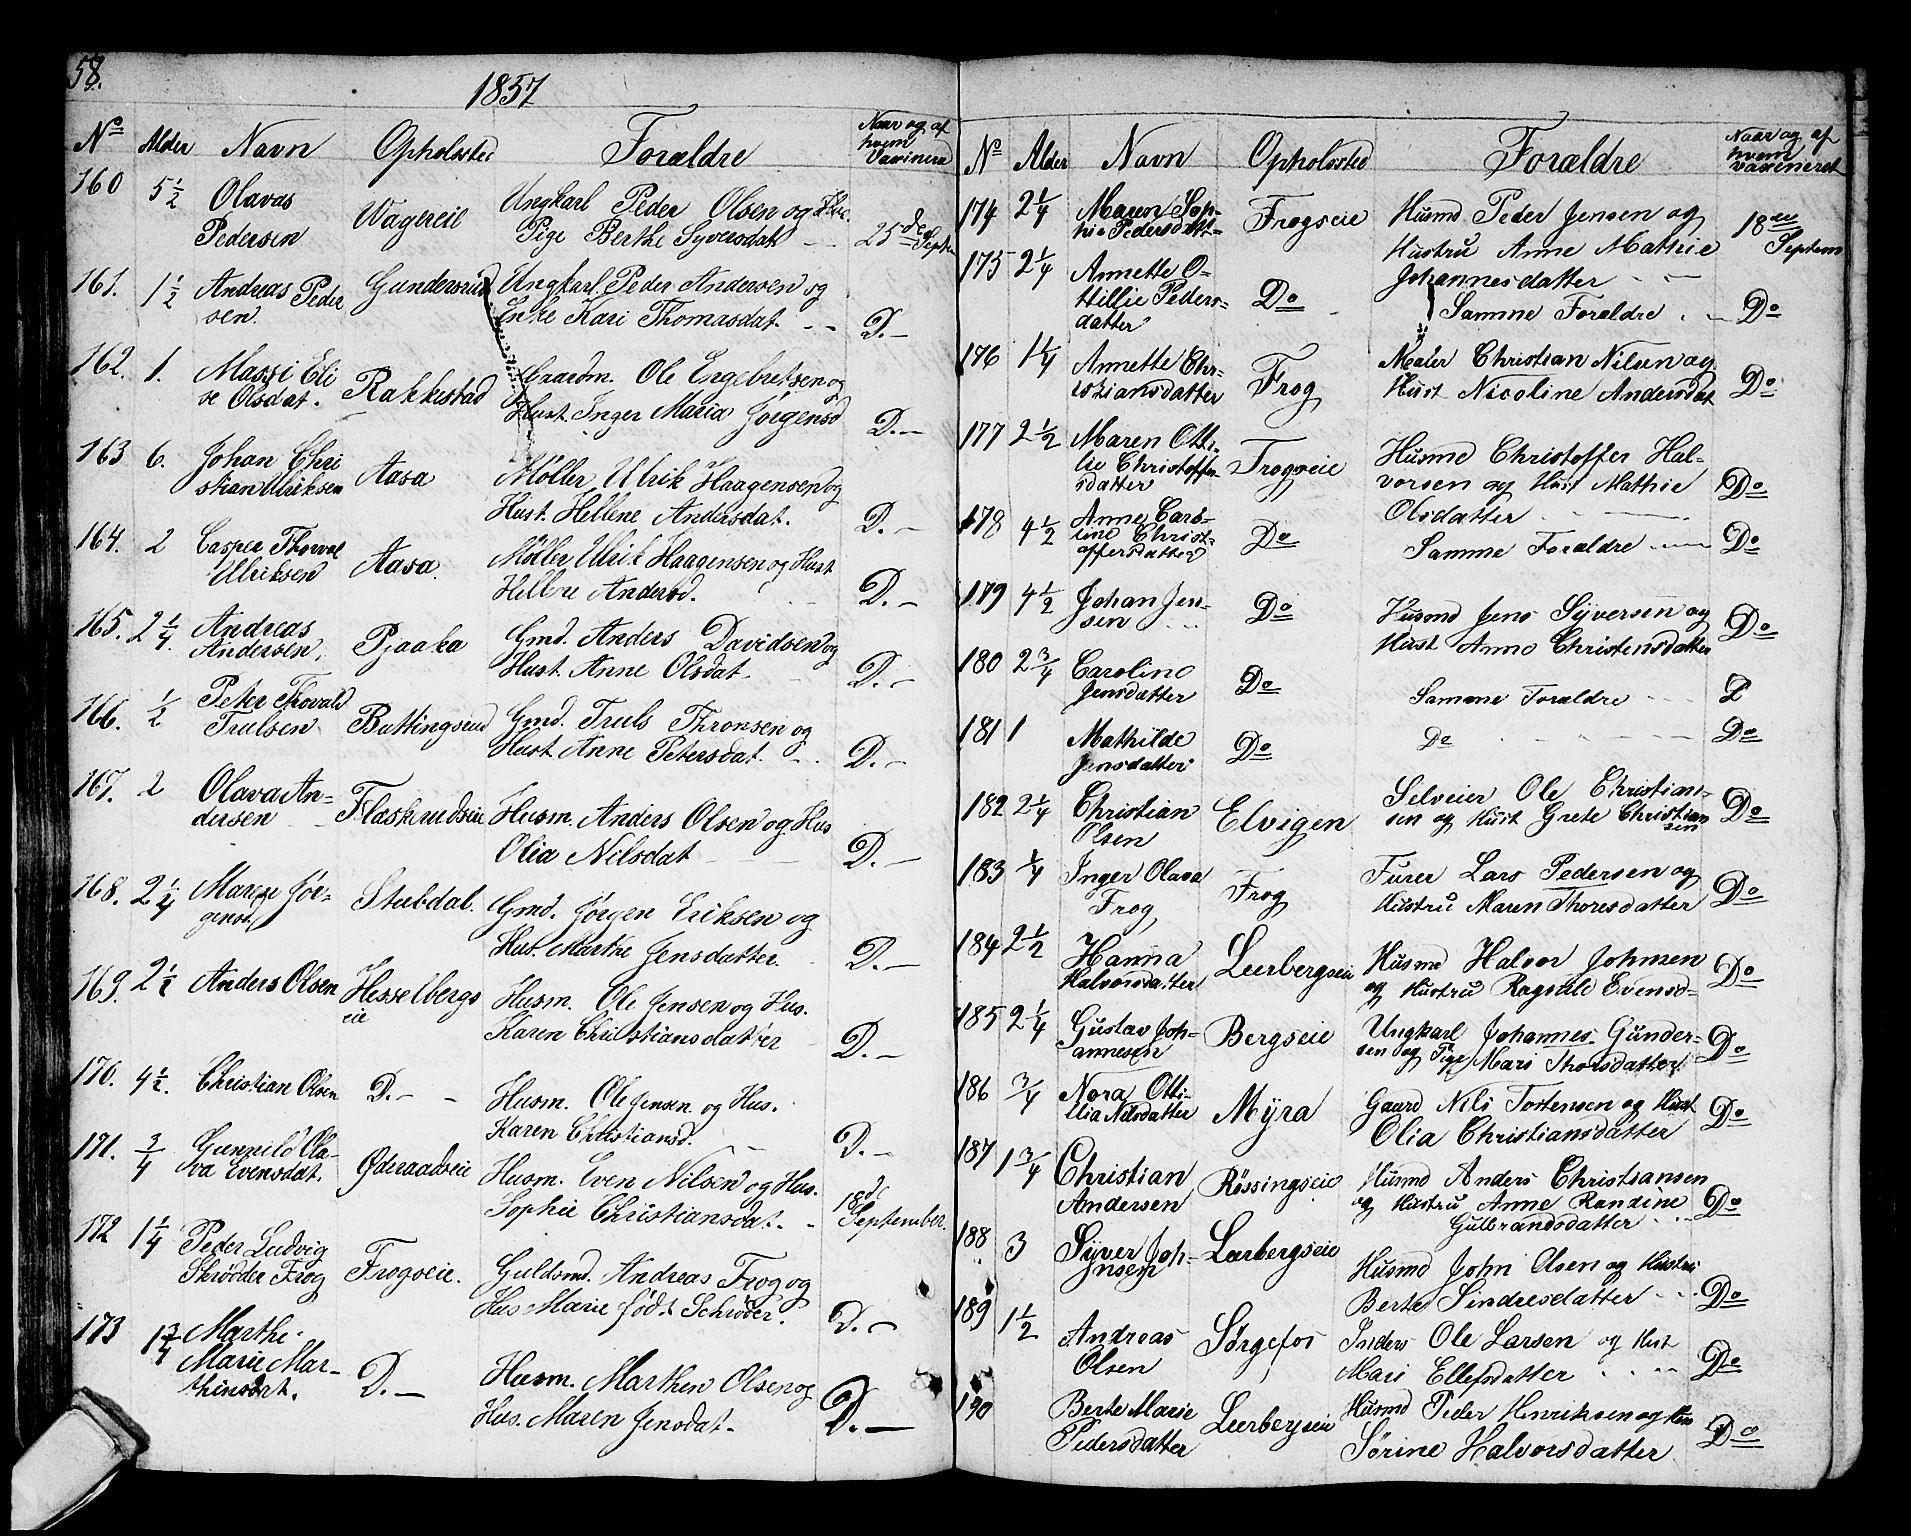 58.
1857
No Alder Navn Opholssted Forældre Naar og af hvem Vaxinera
160 5 1/2 Olavas Wagereie Ungkarl Peder Olsen og
Pedersen Pige Berthe Syversdat - 25de Septr
161. 1 1/2 Andreas Peder Gundersrud Ungkarl Peder Andersen og
sen. Enke Kari Thomasdat. - - D. -
162. 1. Massi Eli Rakkestad Gaardm. Ole Engebretsen og
se Olsdat. Hust. Inger Maria Jørgensd D. -
163 6. Johan Chri Aasa Møller Ulrik Haagensen og
stian Ulriksen Hust. Hellene Andersdat. D. -
164. 2 Casper Thorval Aasa. Møller Ulrik Haagensen og Hust
Ulriksen Hellene Andersd. D. -
165. 2 1/4. Andreas Pjaaka Gmd. Anders Davidsen og
Andersen, Hust. Anne Olsdat. D. -
166. 1/2 Peter Thovald Buttingsrud Gmd. Truls Thronsen og
Trulsen Hust. Anne Petersdat. - . D. -
167. 2 Olava An- Flaskerudseie Husm. Anders Olsen og Hus
dersen Olia Nilsdat - D. -
168. 2 1/4 Maren Jør- Stubdal. Gmd. Jørgen Eriksen og
gensd Hus. Marthe Jensdatter. D. -
169. 2 1/2 Anders Olsen Hesselbergs Husm. Ole Jensen og Hus.
eie Karen Christiansdatter D. -
170. 4 1/2. Christian Olsen D. - - Husm. Ole Jensen og Hus.
Karen Christiansd. D. -
171. 3/4 Gunnild Ola- Øderaadseie Husm. Even Nilsen og Hus.
va Evensdat. Sophie Christiansdat. - 18de September.
172 1 1/4 Peder Ludvig Frogseie. Guldsmd. Andreas Frog og
Skrødder Frog Hus Marie født Schrøder. D. -
173 1 3/4 Marthe
Marie Mar- D. - Husm. Marthen Olsen og
thinsdat. Hus. Maren Jensdat. D. -
No Alder Navn Opholssted Forældre Naar og af hvem vaxineret
174 2 1/4 Maren Sop- Frogseie Husmd Peder Jensen og 18de
hie Pedersdatt- Hustru Anne Mathie Septem
175 2 1/4 Annette O- Johannesdatter - -
ttillie Peders- Do Samme Forældre . - Do
datter
176 1 1/4 Annette Chr- Frog Maler Christian Nilsen og
istiansdatter Hust Nicoline Andersdat Do
177 2 1/2 Maren Otti- Frogseie Husmd Christoffer Hal-
lie Christoffer vorsen og Hust Mathie Do
sdatter Olsdatter
178 4 1/2 Anne Caro-
line Christ- Do Samme Forældre - Do
offersdatter
179 4 1/2 Johan Jen- Do Husmd Jens Syversen og Do
sen Hust Anne Christensdatter
180 2 3/4 Caroline Do Samme Forældre - D
Jensdatter
181 1 Mathilde Do Do - Do
Jensdatter
182 2 1/4 Christian Elvigen Selveier Ole Christian- Do
Olsen sen og Hust Grete Christian
sen
183 1/4 Inger Olava Frog Furer Lars Pedersen og Do
Frog Hustru Maren Thoresdatter
184 2 1/2 Hanna Leerbergseie Husmd Halvor Johnsen Do
Halvorsdatter og Hustru Ragnile Evensd-
185 2 1/4 Gustav Joh- Bergseie Ungkarl Johannes Gunder- Do
annesen sen og Pige Mari Thorsdatter.
186 3/4 Nora Otti- Myra Gaard Nils Tostensen og Hust Do
llia Nilsdatter Olia Christiansdatter
187 1 3/4 Christian Røssingseie Husmd Anders Christiansen
Andersen og Hustru Anne Randine Do
Gulbrandsdatter - -
188 3 Syver Joh- Lærbergseie Husmd John Olsen og Hustru
nsen Berte Sindresdatter - - Do
189 1 1/2 Andreas Sørgefos Inders Ole Larsen og Hust
Olsen Mari Ellefsdatter - - Do
190 Berte Marie Leerbergseie Husmd Peder Henriksen og Hus
Pedersdatter Sørine Halvorsdatter Do